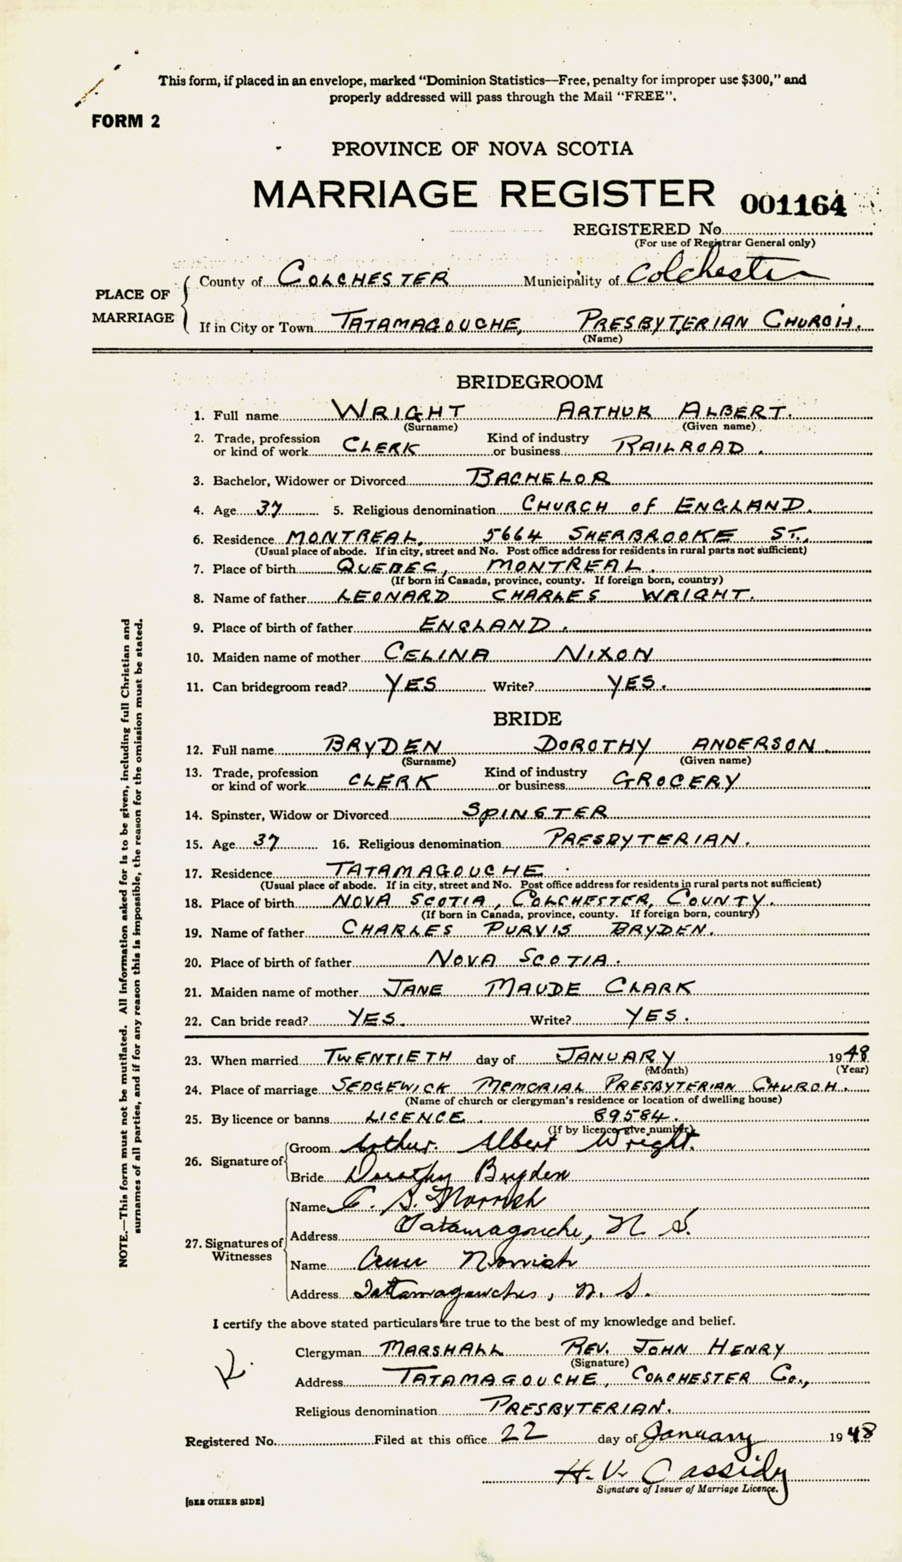 This form, if placed in an envelope, marked "Dominion Statistics—Free, penalty for improper use $300," and
properly addressed will pass through the Mail "FREE".
FORM 2
PROVINCE OF NOVA SCOTIA
MARRIAGE REGISTER 001164
REGISTERED No.
(For use of Registrar General only)
PLACE OF MARRIAGE
County of COLCHESTER Municipality of Colchester
If in City or Town TATAMAGOUCHE, PRESBYTERIAN CHURCH.
(Name)
BRIDEGROOM
1. Full name WRIGHT ARTHUR ALBERT.
(Surname) (Given name)
2. Trade, profession Kind of industry
or kind of work CLERK or business RAILROAD.
3. Bachelor, Widower or Divorced BACHELOR
4. Age 37 5. Religious denomination CHURCH of ENGLAND.
6. Residence MONTREAL, 5664 SHERBROOKE ST.,
(Usual place of abode. If in city, street and No. Post office address for residents in rural parts not sufficient)
7. Place of birth QUEBEC, MONTREAL.
(If born in Canada, province, county. If foreign born, country)
8. Name of father LEONARD CHARLES WRIGHT.
9. Place of birth of father ENGLAND.
10. Maiden name of mother CELINA NIXON
11. Can bridegroom read? YES Write? YES.
BRIDE
12. Full name BRYDEN DOROTHY ANDERSON.
(Surname) (Given name)
13. Trade, profession Kind of industry
or kind of work CLERK or business GROCERY
14. Spinster, Widow or Divorced SPINSTER
15. Age 37 16. Religious denomination PRESBYTERIAN.
17. Residence TATAMAGOUCHE.
(Usual place of abode. If in city, street and No. Post office address for residents in rural parts not sufficient)
18. Place of birth NOVA SCOTIA, COLCHESTER, COUNTY.
(If born in Canada, province, county. If foreign born, country)
19. Name of father CHARLES PURVIS BRYDEN.
20. Place of birth of father NOVA SCOTIA.
21. Maiden name of mother JANE MAUDE CLARK
22. Can bride read? YES. Write? YES.
23. When married TWENTIETH day of JANUARY 1948
(Month) (Year)
24. Place of marriage SEDGEWICK MEMORIAL PRESBYTERIAN CHURCH.
(Name of church or clergyman's residence or location of dwelling house)
25. By licence or banns LICENCE. 89584.
(If by licence, give number)
26. Signature of
Groom Arthur Albert Wright.
Bride Dorothy Bryden
27. Signatures of Witnesses
Name
Address Tatamagouche, N. S.
Name
Address Tatamagouche, N. S.
I certify the above stated particulars are true to the best of my knowledge and belief.
Clergyman MARSHALL REV. JOHN HENRY
(Signature)
Address TATAMAGOUCHE, COLCHESTER Co.,
Religious denomination PRESBYTERIAN.
Registered No. Filed at this office 22 day of January 1948
H. V. Cassidy
Signature of Issuer of Marriage Licence.
[SEE OTHER SIDE]
NOTE.—This form must not be mutilated. All information asked for is to be given, including full Christian and
surnames of all parties, and if for any reason this is impossible, the reason for the omission must be stated.